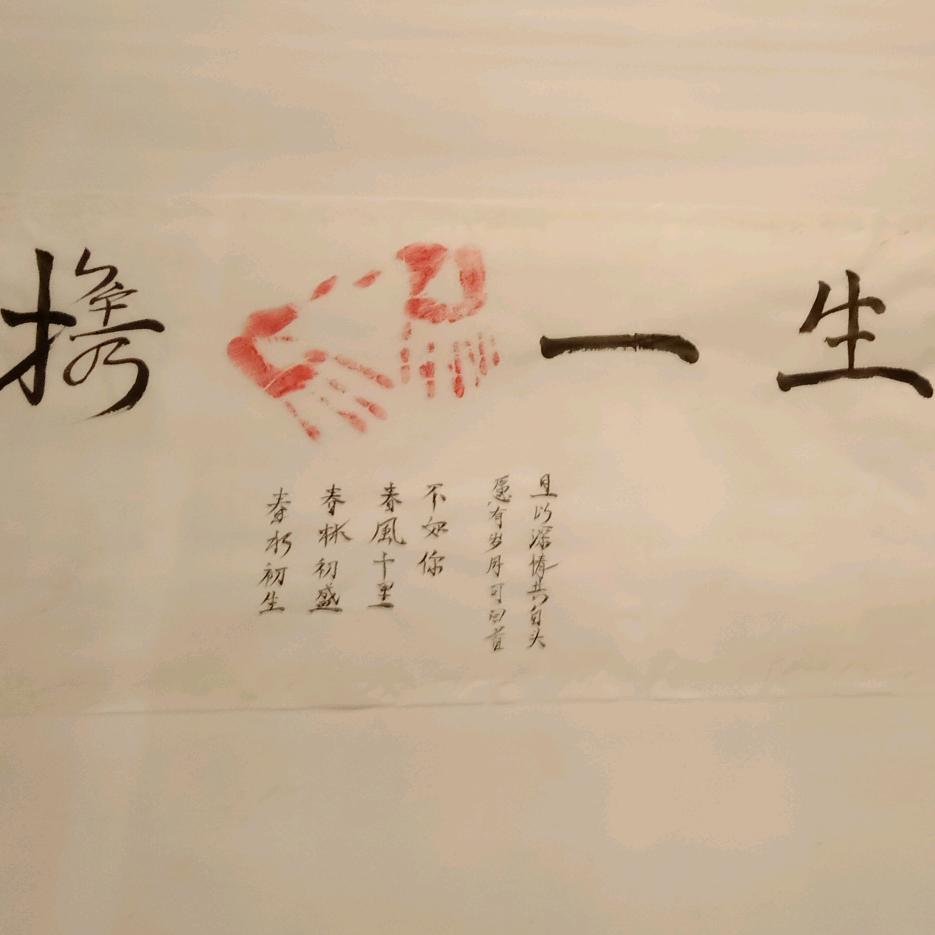 携一生
春水初生
春林初盛
春風十里
不如你
愿有岁月可回首
且以深情共白头